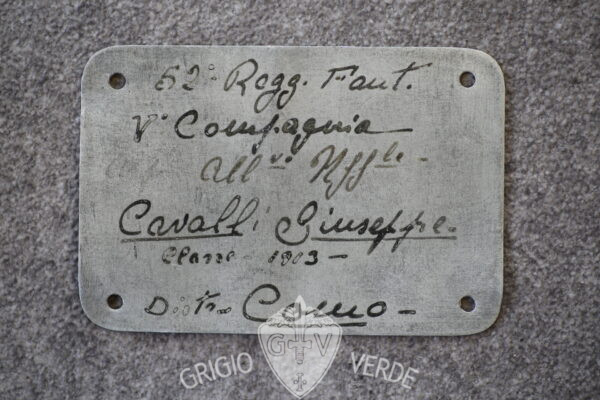 62° Regg. Fant.
V° Compagnia
All.vo Uff.le -
Cavalli Giuseppe.
Classe - 1913 -
Distr. Como -
G V
GRIGIO VERDE